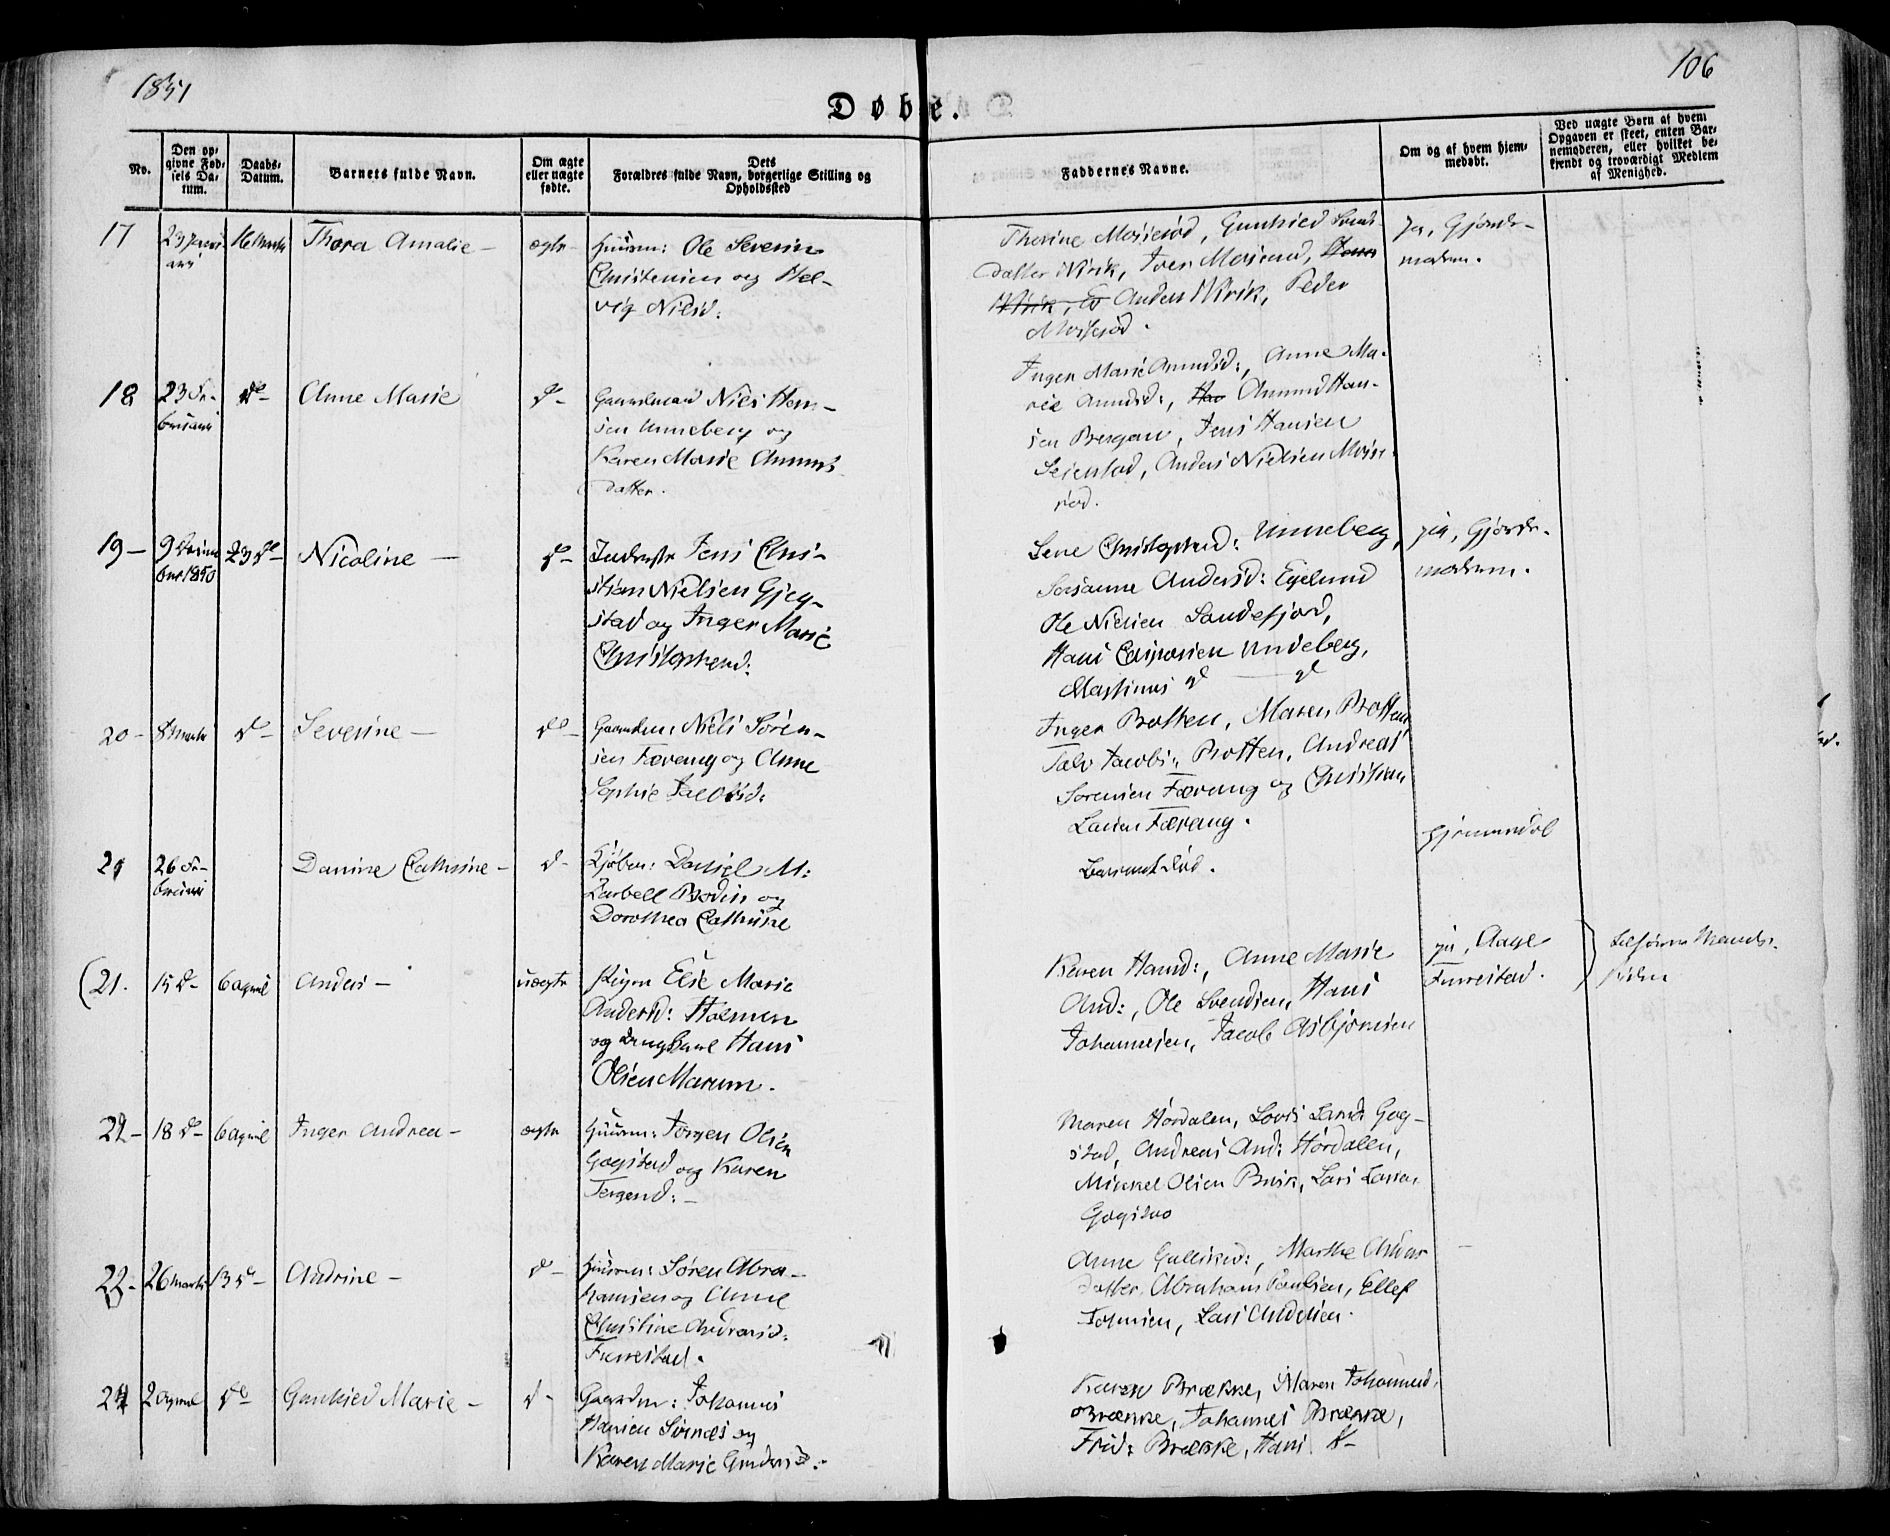 1851
106
Døbte.
No.
Den opgivne Fødsels Datum.
Daabs-Datum.
Barnets fulde Navn.
Om ægte eller uægte fødte.
Dets Forældres fulde Navn, borgerlige Stilling og Opholdssted
Faddernes Navne.
Om og af hvem hjemmedøbt.
Ved uægte Børn af hvem Opgaven er skeet, enten Barnemoderen, eller hvilket bekjendt og troværdigt Medlem af Menighed.
17
23 Janu-
ari
16 Marts
Thora Amalie -
ægte -
Huusm: Ole Severin
Christensen og Hel-
vig Nilsd:
Thorine Moiserød, Gunhild
datter Virik, Iver
Anders Virik, Peder
Moiserød.
Ja, Gjorde-
modren.
18
23 Fe-
bruari
do -
Anne Marie
do -
Gaardmand Niels Han-
sen Unneberg og
Karen Marie Amunds
datter.
Inger Marie Amundsd:, Anne Ma-
rie Amundsd:, Amund Han-
sen Bergan, Jens Hansen
Seiersted, Anders Nielsen Moise-
rød.
19 -
9 Decem
ber 1850
23 do -
Nicoline -
do -
Inderste Jens Chri-
stian Nielsen Gjeg-
stad og Inger Marie
Christophersd:
Lene Christophersd: Unneberg,
Susanne Andersd: Egelund
Ole Nielsen Sandefjord,
Hans Unneberg,
Mathinus do - do
ja, Gjorde-
modren.
20 -
8 Marts
do -
Severine -
do -
Gaardm: Niels Søren-
sen Færang og Anne
Sophie Jacobsd:
Inger Rotten, Maren Rotten
Jacobs: Rotten, Andreas
Sørensen Færang og Christian
Larsen Færang.
21
26 Fe-
bruari
Danine Cathrine -
do -
Kjøbm: Daniel M:
Zarbell Bodin og
Dorothea Cathrine
(21.
15 do -
6 April
Anders -
uægte
Pigen Else Marie
Andersd: Holmen
og Ungkarl Hans
Olsen Marum.
Karen Hansd:, Anne Marie
And:, Ole Svendsen, Hans
Johannesen, Jacob Asbjørnsen
ja, Aage
Furrestad.
22 -
18 do -
6 April
Inger Andrea -
ægte
Huusm: Jørgen Olsen
Gogstad og Karen
Jørgensd: -
Maren Hørdalen, Lovis Gog-
stad, Andreas And: Hørdalen,
Mikkel Olsen Virik, Lars Larsen
Gogstad
23 -
26 Marts
13 do -
Andrine -
do -
Huusm: Søren Abra-
hamsen og Anne
Christine Andreasd:
Furrestad.
Anne Gulliksd:, Marthe Anders
datter, Abraham Paulsen, Ellef
Johnsen, Lars Andersen.
24
2 April
do
Gunhild Marie -
do -
Gaardm: Johannes
Hansen Svines og
Karen Marie Andersd:
Karen Brække, Maren Johannesd.
Brække, Johannes Brække,
Frid: Brække, Hans B-